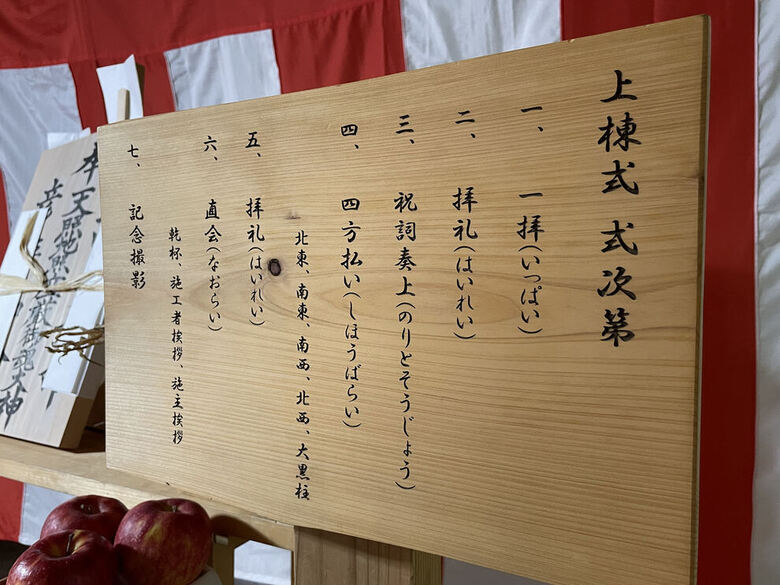 上棟式 式次第
一、 一拝(いっぱい)
二、 拝礼(はいれい)
三、 祝詞奏上(のりとそうじょう)
四、 四方払い(しほうばらい)
北東、南東、南西、北西、大黒柱
五、 拝礼(はいれい)
六、 直会(なおらい)
乾杯、施工者挨拶、施主挨拶
七、 記念撮影